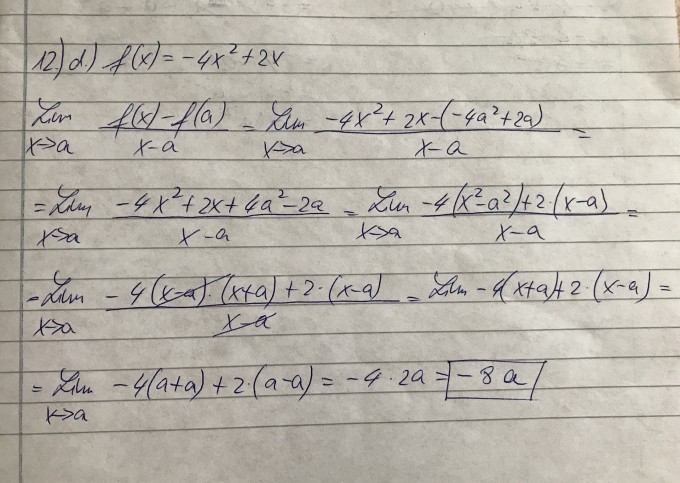 12.) d.) f(x) = -4x² + 2x
Lim x→a (f(x) - f(a))/(x-a) = Lim x→a (-4x² + 2x - (-4a² + 2a))/(x-a) =
= Lim x→a (-4x² + 2x + 4a² - 2a)/(x-a) = Lim x→a (-4(x² - a²) + 2·(x-a))/(x-a) =
= Lim x→a (-4(x-a)·(x+a) + 2·(x-a))/(x-a) = Lim -4(x+a) + 2·(x-a) =
= Lim x→a -4(a+a) + 2·(a-a) = -4·2a = -8a